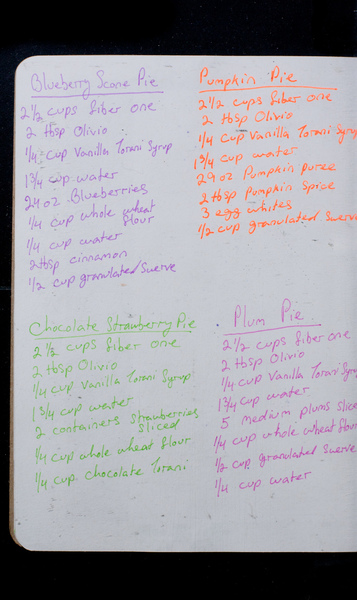 Blueberry Scone Pie
2 1/2 cups fiber one
2 tbsp Olivio
1/4 cup Vanilla Torani Syrup
1 3/4 cup water
24 oz. Blueberries
1/4 cup whole wheat flour
1/4 cup water
2 tbsp cinnamon
1/2 cup granulated Swerve
Pumpkin Pie
2 1/2 cups fiber one
2 tbsp Olivio
1/4 cup Vanilla Torani Syrup
1 3/4 cup water
29 oz Pumpkin puree
2 tbsp Pumpkin Spice
3 egg whites
1/2 cup granulated Swerve
Chocolate Strawberry Pie
2 1/2 cups fiber one
2 tbsp Olivio
1/4 cup Vanilla Torani Syrup
1 3/4 cup water
2 containers strawberries
sliced
1/4 cup whole wheat flour
1/4 cup chocolate Torani
Plum Pie
2 1/2 cups fiber one
2 tbsp Olivio
1/4 cup Vanilla Torani Syrup
1 3/4 cup water
5 medium plums slice
1/4 cup whole wheat flour
1/2 cup granulated Swerve
1/4 cup water